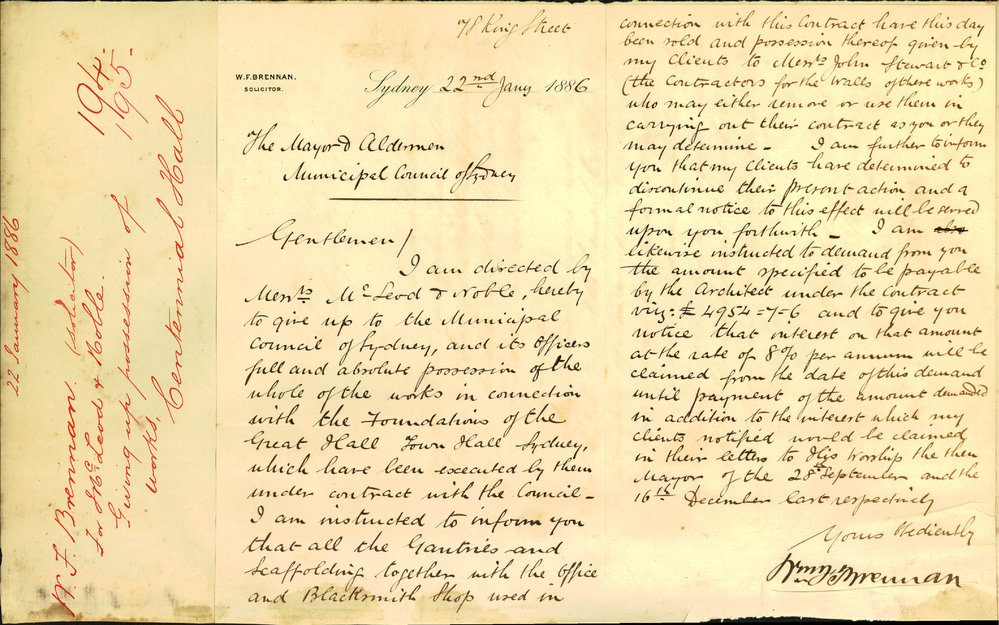 22 January 1886
W. F. Brennan (solicitor)
For McLeod & Noble.
Giving up possession of
works,
Centennial Hall
194.
195.
78 King Street
W. F. BRENNAN.
SOLICITOR.
Sydney 22nd Jany 1886
The Mayor & Aldermen
Municipal Council of Sydney
Gentlemen/
I am directed by
Messrs McLeod & Noble, hereby
to give up to the Municipal
Council of Sydney, and its Officers
full and absolute possession of the
whole of the works in connection
with the Foundations of the
Great Hall Town Hall Sydney,
which have been executed by them
under contract with the Council –
I am instructed to inform you
that all the Gantries and
Scaffolding together with the Office
and Blacksmith Shop used in
connection with this Contract have this day
been sold and possession thereof given by
my Clients to Messrs John Stewart & Co
(the Contractors for the Walls of there works)
who may either remove or use them in
carrying out their contract as you or they
may determine – I am further to inform
you that my Clients have determined to
discontinue their present action and a
formal notice to this effect will be served
upon you forthwith – I am also
likewise instructed to demand from you
the amount specified to be payable
by the Architect under the Contract
viz: £4954-7-6 and to give you
notice that interest on that amount
at the rate of 8% per annum will be
claimed from the date of this demand
until payment of the amount demanded
in addition to the interest which my
clients notified would be claimed
in their letters to His Worship the then
Mayor of the 28th September and the
16th December last respectively
Yours Obediently
Wm F Brennan